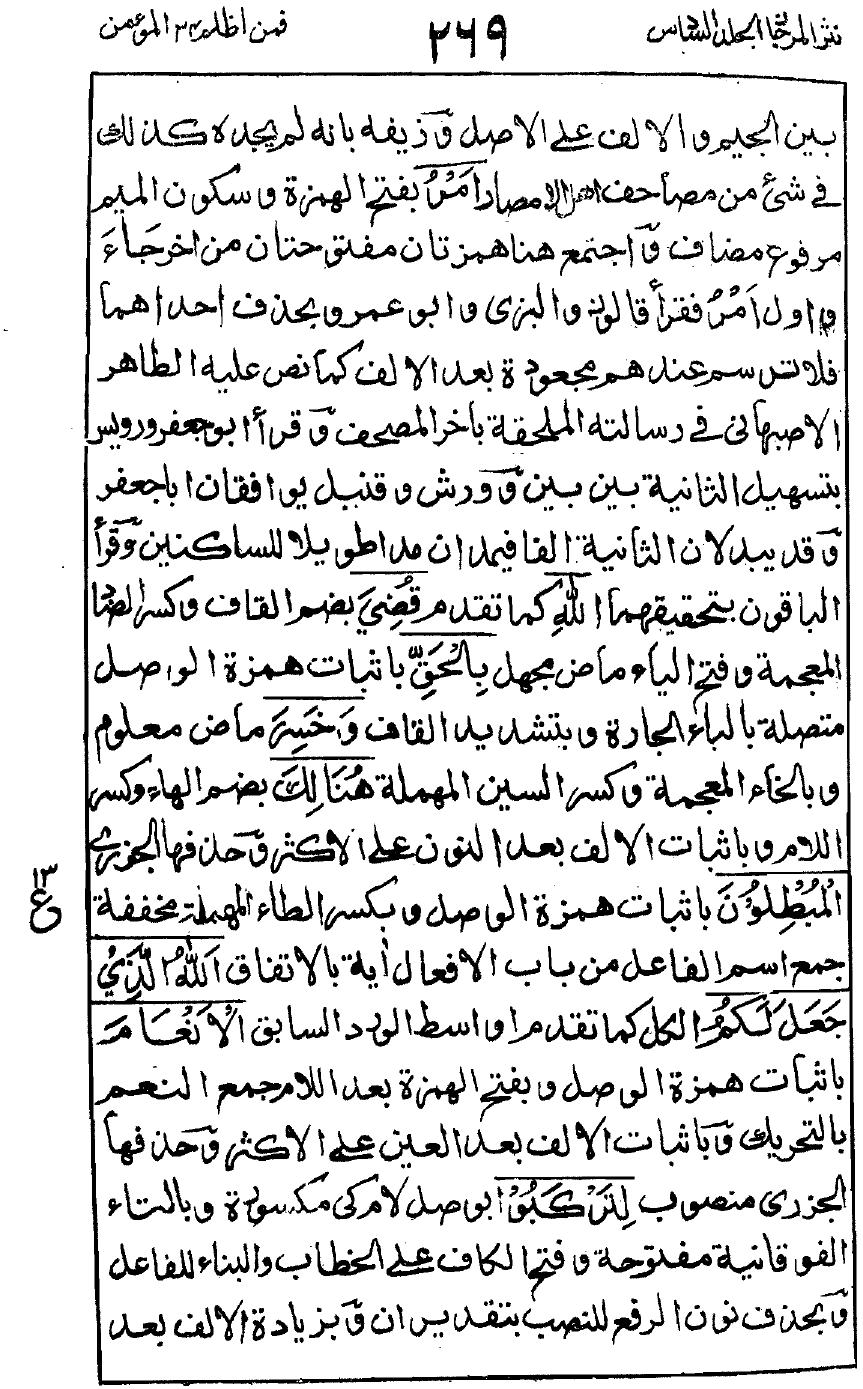 نثر المرجان المجلد السادس ٢٦٩ فمن اظلم ٢٤ المؤمن
بين الجيم والالف على الاصل وَزيفه بانه لم يجده كذلك
فى شئ من مصاحف اهل الامصار اَمْرُ بفتح الهمزة وسكون الميم
مرفوع مضاف وَاجتمع هنا همزتان مفتوحتان من اخر جَاءَ
واول اَمْرُ فقرأ قالون والبزى وابو عمرو بحذف احداهما
فلا ترسم عندهم مجعودة بعد الالف كما نص عليه الطاهر
الاصبهانى فى رسالته الملحقة باخر المصحف وَقرأ ابو جعفر ورويس
بتسهيل الثانية بين بين وَورش وقنبل يوافقان اباجعفر
وَقد يبدلان الثانية الفا فيمدان مدا طويلا للساكنين وَقرأ
الباقون بتحقيقهما اللّٰهِ كما تقدم قُضِيَ بضم القاف وكسر الضاد
المعجمة وفتح الياء ماض مجهل بِالْحَقِّ باثبات همزة الوصل
متصلة بالباء الجارة وبتشديد القاف وَخَسِرَ ماض معلوم
وبالخاء المعجمة وكسر السين المهملة هُنَالِكَ بضم الهاء وكسر
اللام وباثبات الالف بعد النون على الاكثر وَحذفها الجزرى
الْمُبْطِلُوْنَ باثبات همزة الوصل وبكسر الطاء المهملة مخففة
١٣
ع
جمع اسم الفاعل من باب الافعال اٰية بالاتفاق اَللّٰهُ الَّذِيْ
جَعَلَ لَكُمُ الكل كما تقدم اواسط الورد السابق الْاَنْعَامَ
باثبات همزة الوصل وبفتح الهمزة بعد اللام جمع النعم
بالتحريك وَباثبات الالف بعد العين على الاكثر وَحذفها
الجزرى منصوب لِتَرْكَبُوْا بوصل لام كى مكسورة وبالتاء
الفوقانية مفتوحة وفتح الكاف على الخطاب والبناء للفاعل
وَبحذف نون الرفع للنصب بتقدير ان وَبزيادة الالف بعد